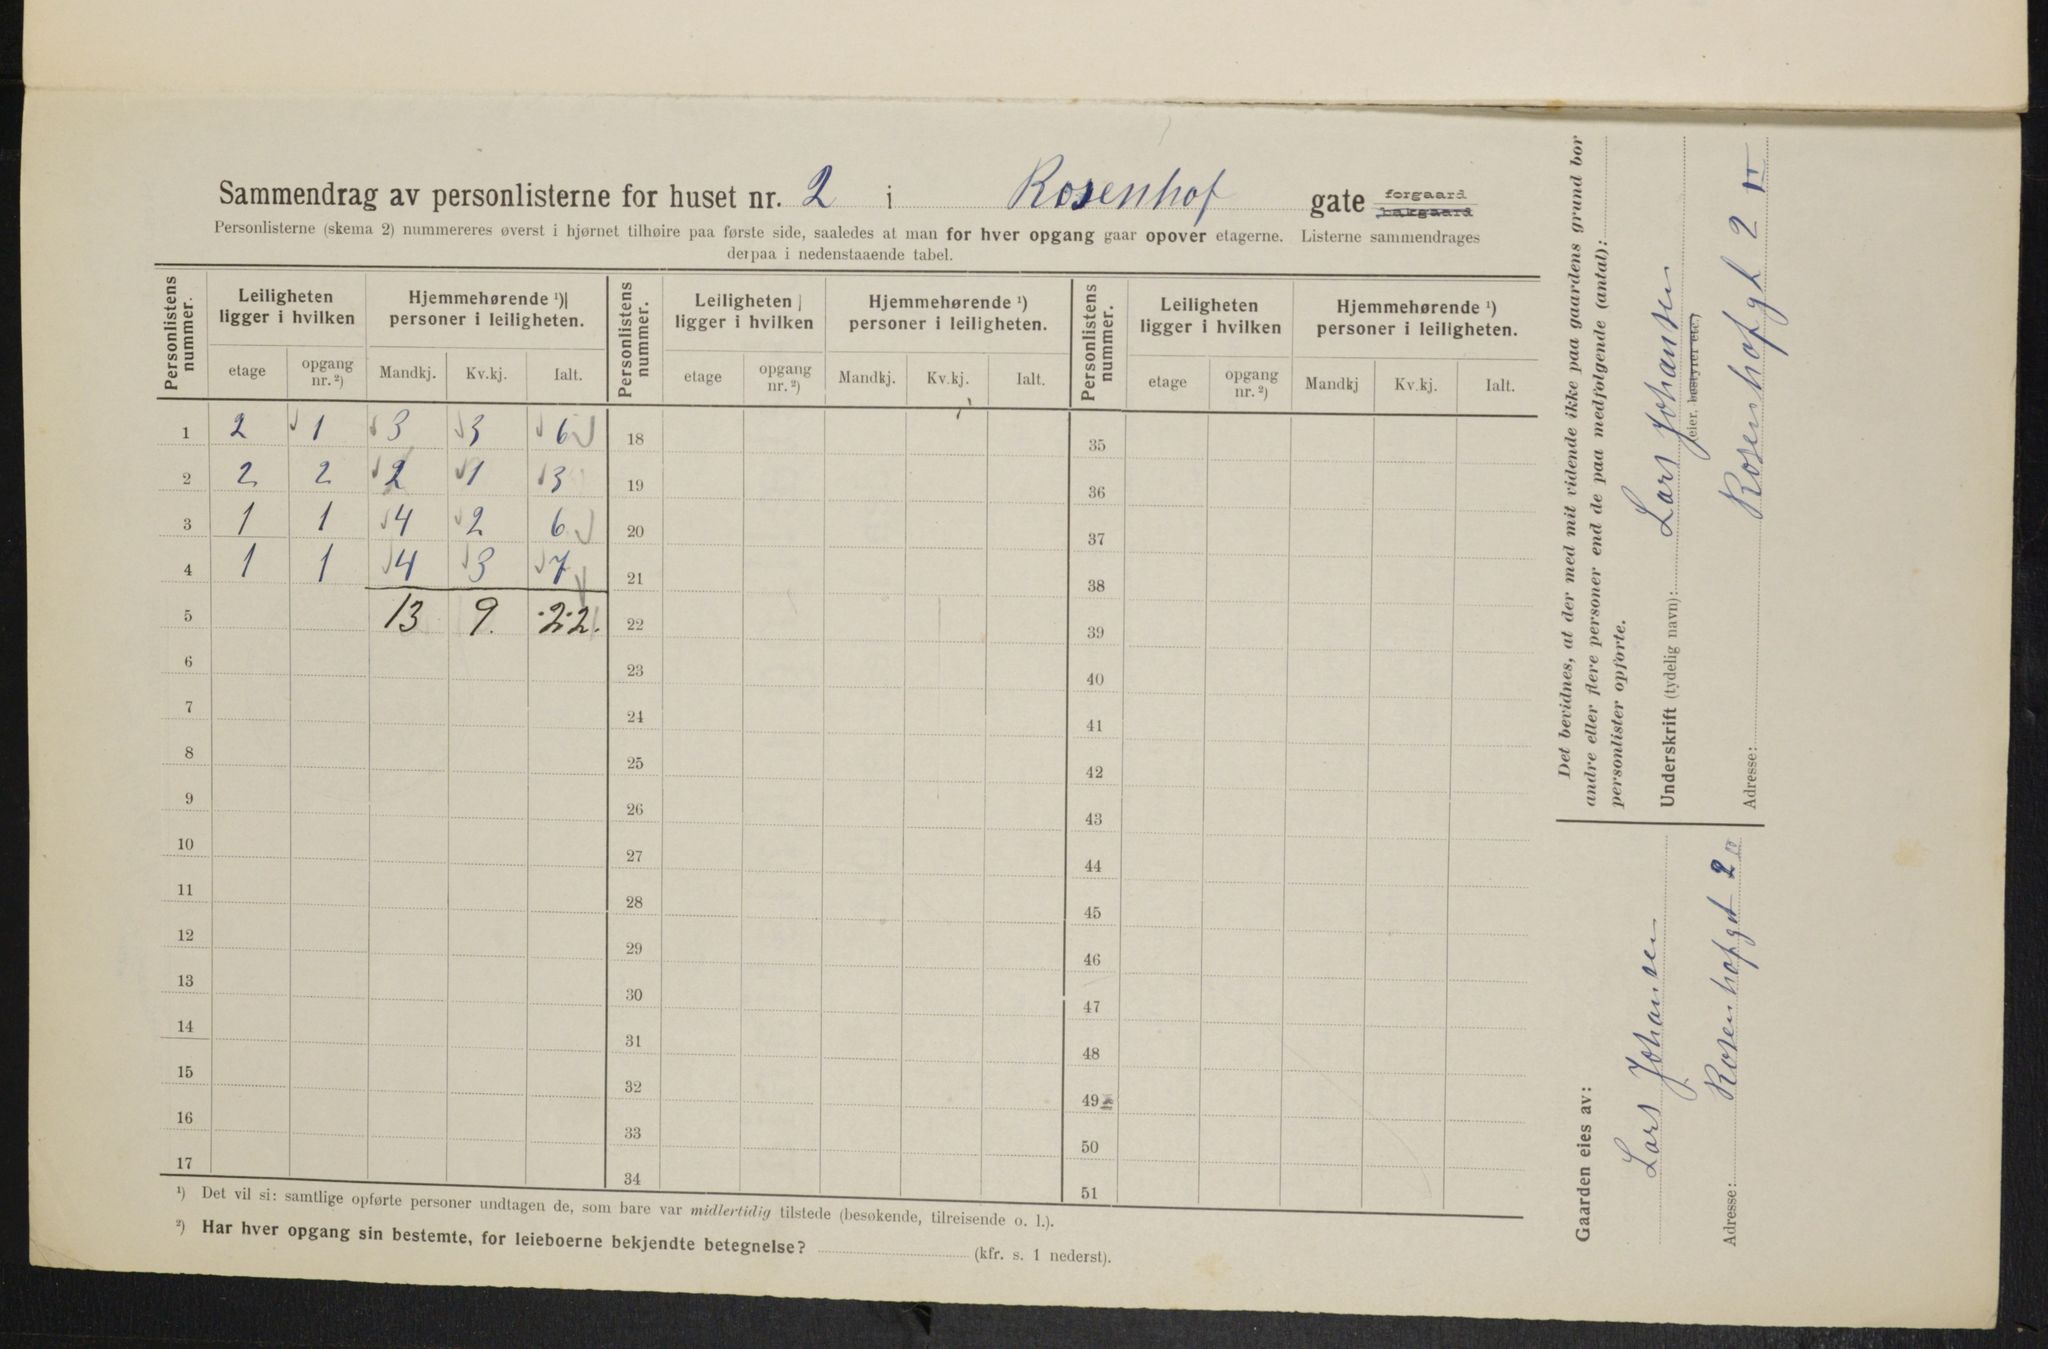 Sammendrag av personlisterne for huset nr. 2 i Rosenhof gate forgaard bakgaard
Personlisterne (skema 2) nummereres øverst i hjørnet tilhøire paa første side, saaledes at man for hver opgang gaar opover etagerne. Listerne sammendrages
derpaa i nedenstaaende tabel.
Personlistens nummer. Leiligheten ligger i hvilken Hjemmehørende ¹) personer i leiligheten. Personlistens nummer. Leiligheten ligger i hvilken Hjemmehørende ¹) personer i leiligheten. Personlistens nummer. Leiligheten ligger i hvilken Hjemmehørende ¹) personer i leiligheten.
etage opgang nr. ²) Mandkj. Kv.kj. Ialt. etage opgang nr. ²) Mandkj. Kv.kj. Ialt. etage opgang nr. ²) Mandkj Kv.kj. Ialt.
1 2 1 3 3 6 18 35
2 2 2 2 1 3 19 36
3 1 1 4 2 6 20 37
4 1 1 4 3 7 21 38
5 13 9. 22. 22 39
6 23 40
7 24 41
8 25 42
9 26 43
10 27 44
11 28 45
12 29 46
13 30 47
14 31 48
15 32 49
16 33 50
17 34 51
¹) Det vil si: samtlige opførte personer undtagen de, som bare var midlertidig tilstede (besøkende, tilreisende o. l.).
²) Har hver opgang sin bestemte, for leieboerne bekjendte betegnelse? (kfr. s. 1 nederst).
Det bevidnes, at der med mit vidende ikke paa gaardens grund bor
andre eller flere personer end de paa medfølgende (antal):
personlister opførte.
Underskrift (tydelig navn): Lars Johansen
(eier, bestyrer etc.)
Adresse: Rosenhofgt 2 II
Gaarden eies av:
Lars Johansen
Adresse: Rosenhofgt 2 II